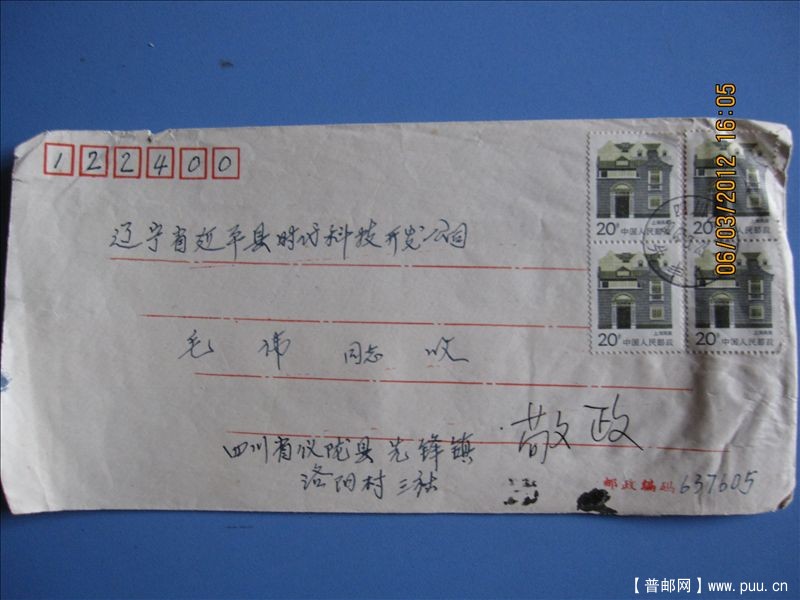 122400
辽宁省延平县时代科技开发公司
毛 伟 同志 收
敬政
四川省仪陇县先锋镇
洛阳村三社
邮政编码 637605
20分 上海民居 中国人民邮政
20分 中国人民邮政
20分 上海民居 中国人民邮政
20分 上海民居 中国人民邮政
四川
06/03/2012 16:05
【普邮网】www.puu.cn